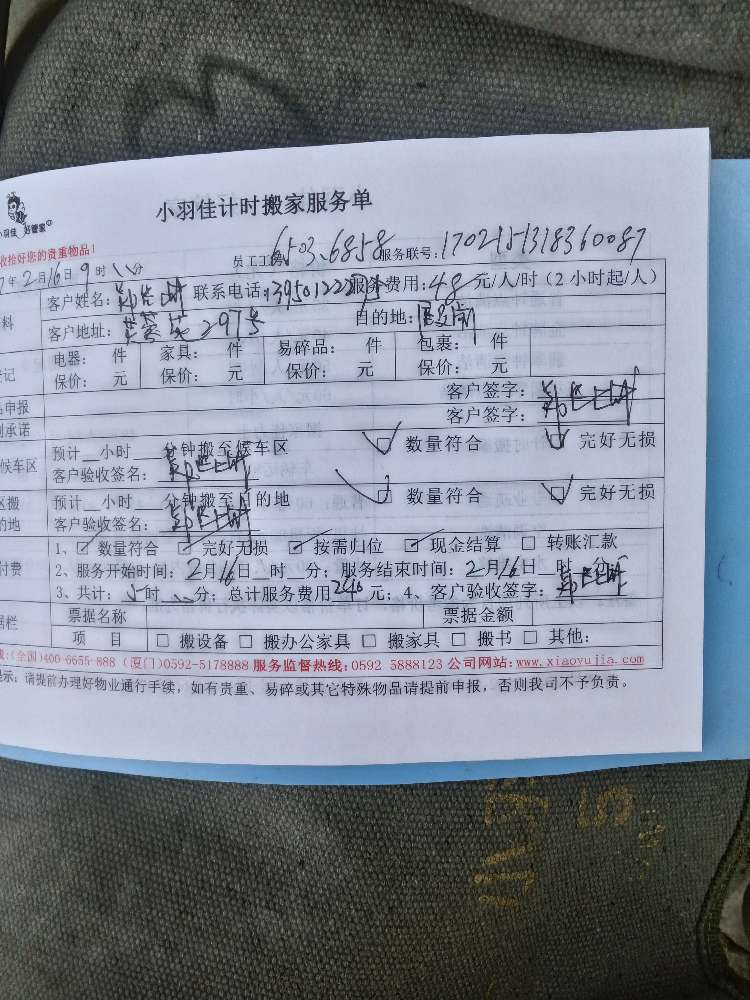 小羽佳 好管家
小羽佳计时搬家服务单
收拾好您的贵重物品!
员工工号 6503.6858 服务联号: 1702151318360087
年2月16日9时 分
客户姓名: 郑 联系电话: 服务费用: 48 元/人/时 (2小时起/人)
客户地址: 297号 目的地:
电器: 件 家具: 件 易碎品: 件 包裹: 件
保价: 元 保价: 元 保价: 元 保价: 元
客户签字: 郑
申报
客户签字: 郑
承诺
预计__小时__分钟搬至候车区 数量符合 完好无损
候车区
客户验收签名: 郑
预计__小时__分钟搬至目的地 数量符合 完好无损
的地
客户验收签名: 郑
1、 数量符合 完好无损 按需归位 现金结算 转账汇款
付费
2、服务开始时间: 2月16日__时__分; 服务结束时间: 2月16日__时__分
3、共计: 时 分; 总计服务费用240元; 4、客户验收签字: 郑
票据名称 票据金额
据栏
项 目 搬设备 搬办公家具 搬家具 搬书 其他:
线:(全国)400-6655-888 (厦门)0592-5178888 服务监督热线:0592 5888123 公司网站:www.xiaoyujia.com
提示: 请提前办理好物业通行手续, 如有贵重、易碎或其它特殊物品请提前申报, 否则我司不予负责。